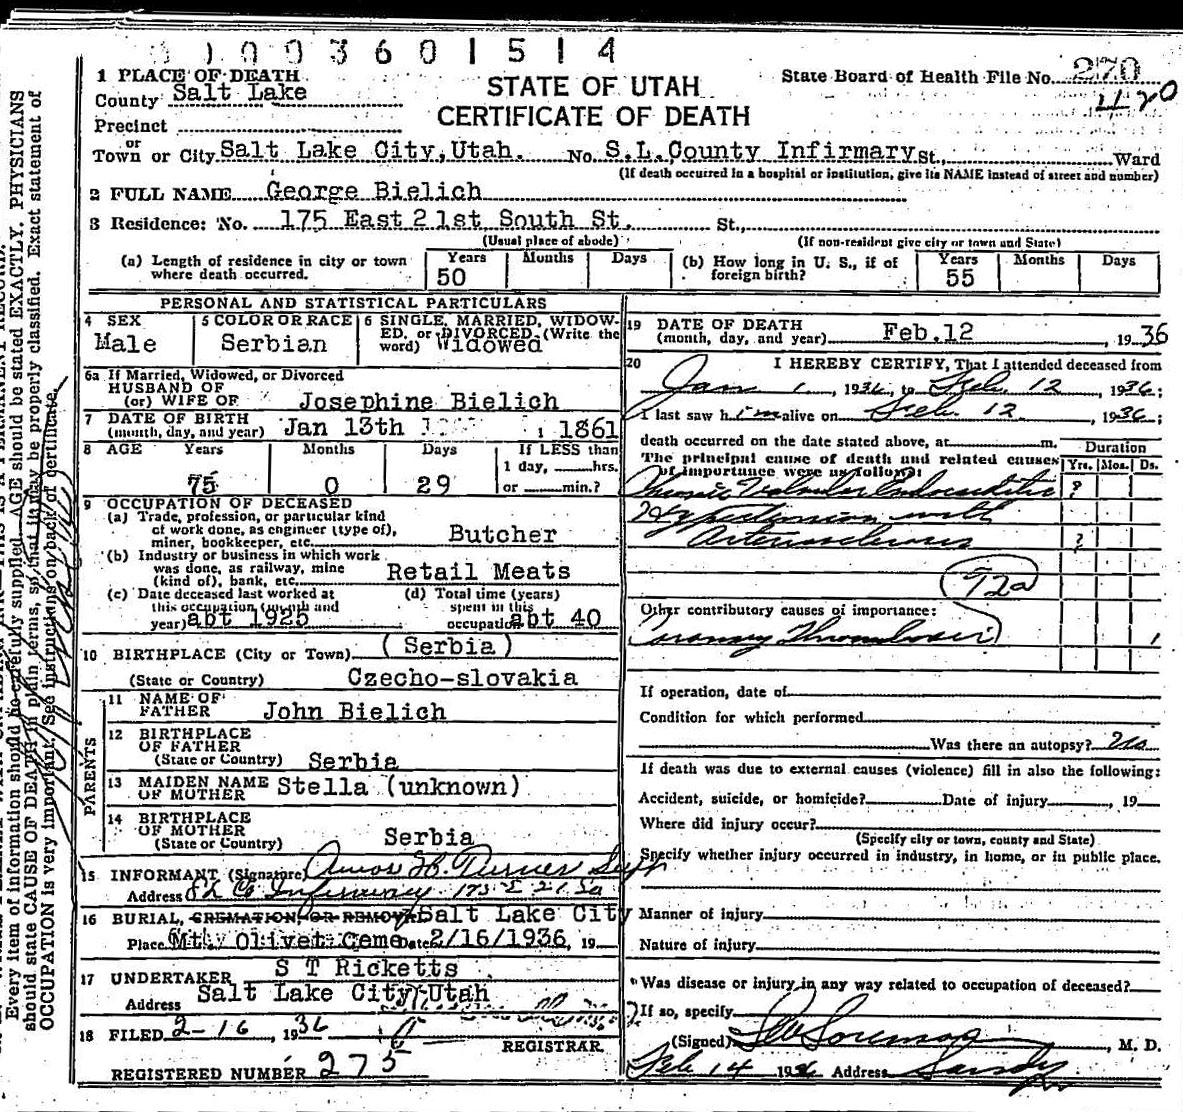 1003601514
STATE OF UTAH
CERTIFICATE OF DEATH
State Board of Health File No. 270
1120
1 PLACE OF DEATH
County Salt Lake
Precinct
or
Town or City Salt Lake City, Utah. No. S.L. County Infirmary St., Ward
(If death occurred in a hospital or institution, give its NAME instead of street and number)
2 FULL NAME George Bielich
3 Residence: No. 175 East 21st South St. St.,
(Usual place of abode) (If non-resident give city or town and State)
(a) Length of residence in city or town where death occurred. Years 50 Months Days
(b) How long in U. S., if of foreign birth? Years 55 Months Days
PERSONAL AND STATISTICAL PARTICULARS
4 SEX
Male
5 COLOR OR RACE
Serbian
6 SINGLE, MARRIED, WIDOWED, or DIVORCED (Write the word) Widowed
6a If Married, Widowed, or Divorced
HUSBAND OF
(or) WIFE OF Josephine Bielich
7 DATE OF BIRTH
(month, day, and year) Jan 13th 1861
8 AGE Years Months Days If LESS than
75 0 29 1 day, hrs.
or min.?
9 OCCUPATION OF DECEASED
(a) Trade, profession, or particular kind
of work done, as engineer (type of),
miner, bookkeeper, etc. Butcher
(b) Industry or business in which work
was done, as railway, mine
(kind of), bank, etc. Retail Meats
(c) Date deceased last worked at
this occupation (month and
year) abt 1925
(d) Total time (years)
spent in this
occupation abt 40
10 BIRTHPLACE (City or Town) (Serbia)
(State or Country) Czecho-slovakia
PARENTS
11 NAME OF
FATHER John Bielich
12 BIRTHPLACE
OF FATHER
(State or Country) Serbia
13 MAIDEN NAME
OF MOTHER Stella (unknown)
14 BIRTHPLACE
OF MOTHER
(State or Country) Serbia
15 INFORMANT (Signature) Amos H. Turner Supt
Address S L Co Infirmary 175 E 21 So
16 BURIAL, CREMATION, OR REMOVAL Salt Lake City
Place Mt. Olivet Ceme Date 2/16/1936, 19
17 UNDERTAKER S T Ricketts
Address Salt Lake City, Utah
18 FILED 2-16, 1936
REGISTRAR
REGISTERED NUMBER 275
19 DATE OF DEATH
(month, day, and year) Feb. 12, 1936
20 I HEREBY CERTIFY, That I attended deceased from
Jan 1, 1936, to Feb. 12, 1936;
I last saw him alive on Feb. 12, 1936;
death occurred on the date stated above, at m.
The principal cause of death and related causes
of importance were as follows:
Duration
Yrs. Mos. Ds.
Chronic Valvular Endocarditis ?
Hypertension with
Arteriosclerosis ?
92a
Other contributory causes of importance:
Coronary Thrombosis 1
If operation, date of
Condition for which performed
Was there an autopsy? no
If death was due to external causes (violence) fill in also the following:
Accident, suicide, or homicide? Date of injury , 19
Where did injury occur?
(Specify city or town, county and State)
Specify whether injury occurred in industry, in home, or in public place.
Manner of injury
Nature of injury
Was disease or injury in any way related to occupation of deceased?
If so, specify
(Signed) , M. D.
Feb 14 1936 Address Sandy
Every item of information should be carefully supplied. AGE should be stated EXACTLY. PHYSICIANS
should state CAUSE OF DEATH in plain terms, so that it may be properly classified. Exact statement of
OCCUPATION is very important. See instructions on back of certificate.